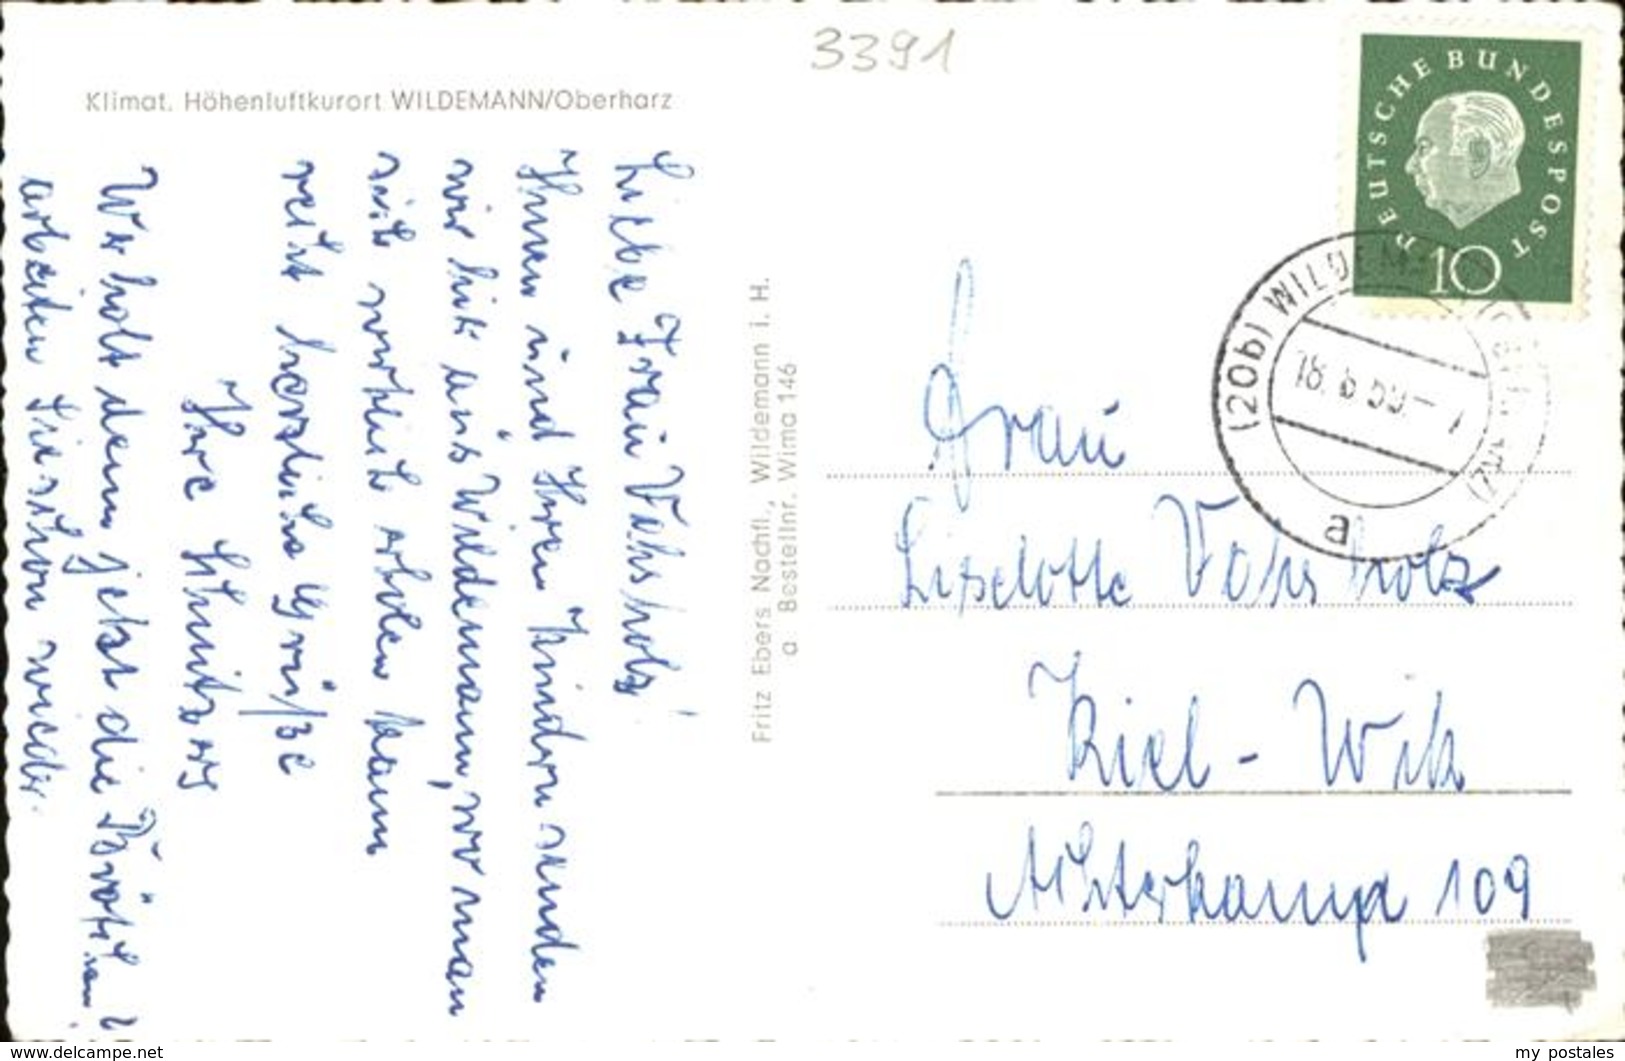 3391
Klimat. Höhenluftkurort WILDEMANN/Oberharz
DEUTSCHE BUNDESPOST
10
(20b) WILDEMANN
18. 6. 59. -
a
Liebe Frau Vahsholz!
Ihnen und Ihren Kindern senden
wir hier aus Wildemann, wo man
sich wirklich erholen kann
recht herzliche Grüße
Ihre
Wer holt denn jetzt die Brötchen?
arbeiten Sie schon wieder.
Fritz Ebers Nachfl., Wildemann i. H.
a Bestellnr. Wima 146
Frau
Liselotte Vahsholz
Kiel - Wik
Achterkamp 109
my postales
www.delcampe.net